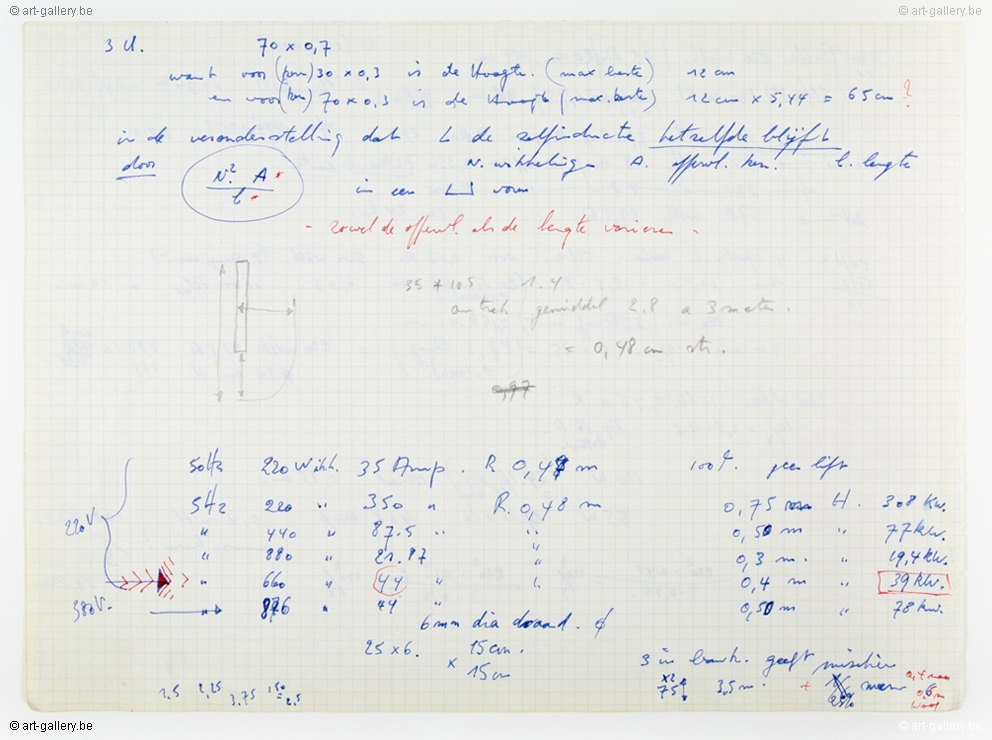 © art-gallery.be © art-gallery.be
3 U. 70 x 0,7
want voor (kern) 30 x 0.3 is de Hoogte. (max. laste) 12 cm
en voor (kern) 70 x 0.3 is de Hoogte (max. laste) 12 cm x 5,44 = 65 cm ?
in de veronderstelling dat L de zelfinductie hetzelfde blijft
door N² A / l N. wikkelingen A. oppervl. kern. l. lengte
in een vorm
- zowel de oppervl. als de lengte varieren -
35 x 105 1.4
gemiddel 2,8 a 3 meter.
= 0,48 cm
0,97
50Hz 220 Wikk. 35 Amp. R 0,48 m 100%. geen lift
220V. 5Hz 220 " 350 " R. 0,48 m 0,75 m H. 308 kw.
" 440 " 87.5 " " 0,50 m " 77 kw.
" 880 " 21.87 " 0,3 m. " 19,4 kw.
" 660 " 44 " " 0,4 m " 39 kw.
380V. " 876 " 44 " 0,50 m " 78 kw.
6mm dia draad. ϕ
25 x 6. 15 cm.
x 15 cm
3 in geeft misschien
x2
75 3,5 m. + meer
1,5 2,25 3,75 150 = 2,5
© art-gallery.be © art-gallery.be